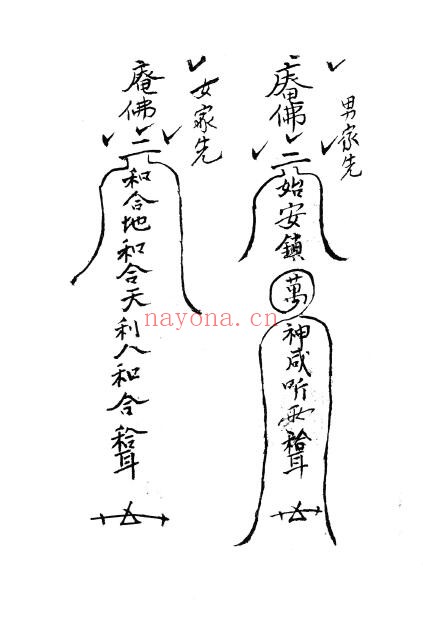 男家先
佛
二
始安鎖
萬
神咸听
女家先
庵佛
二
和合地和合天利人和合
nayona.cn